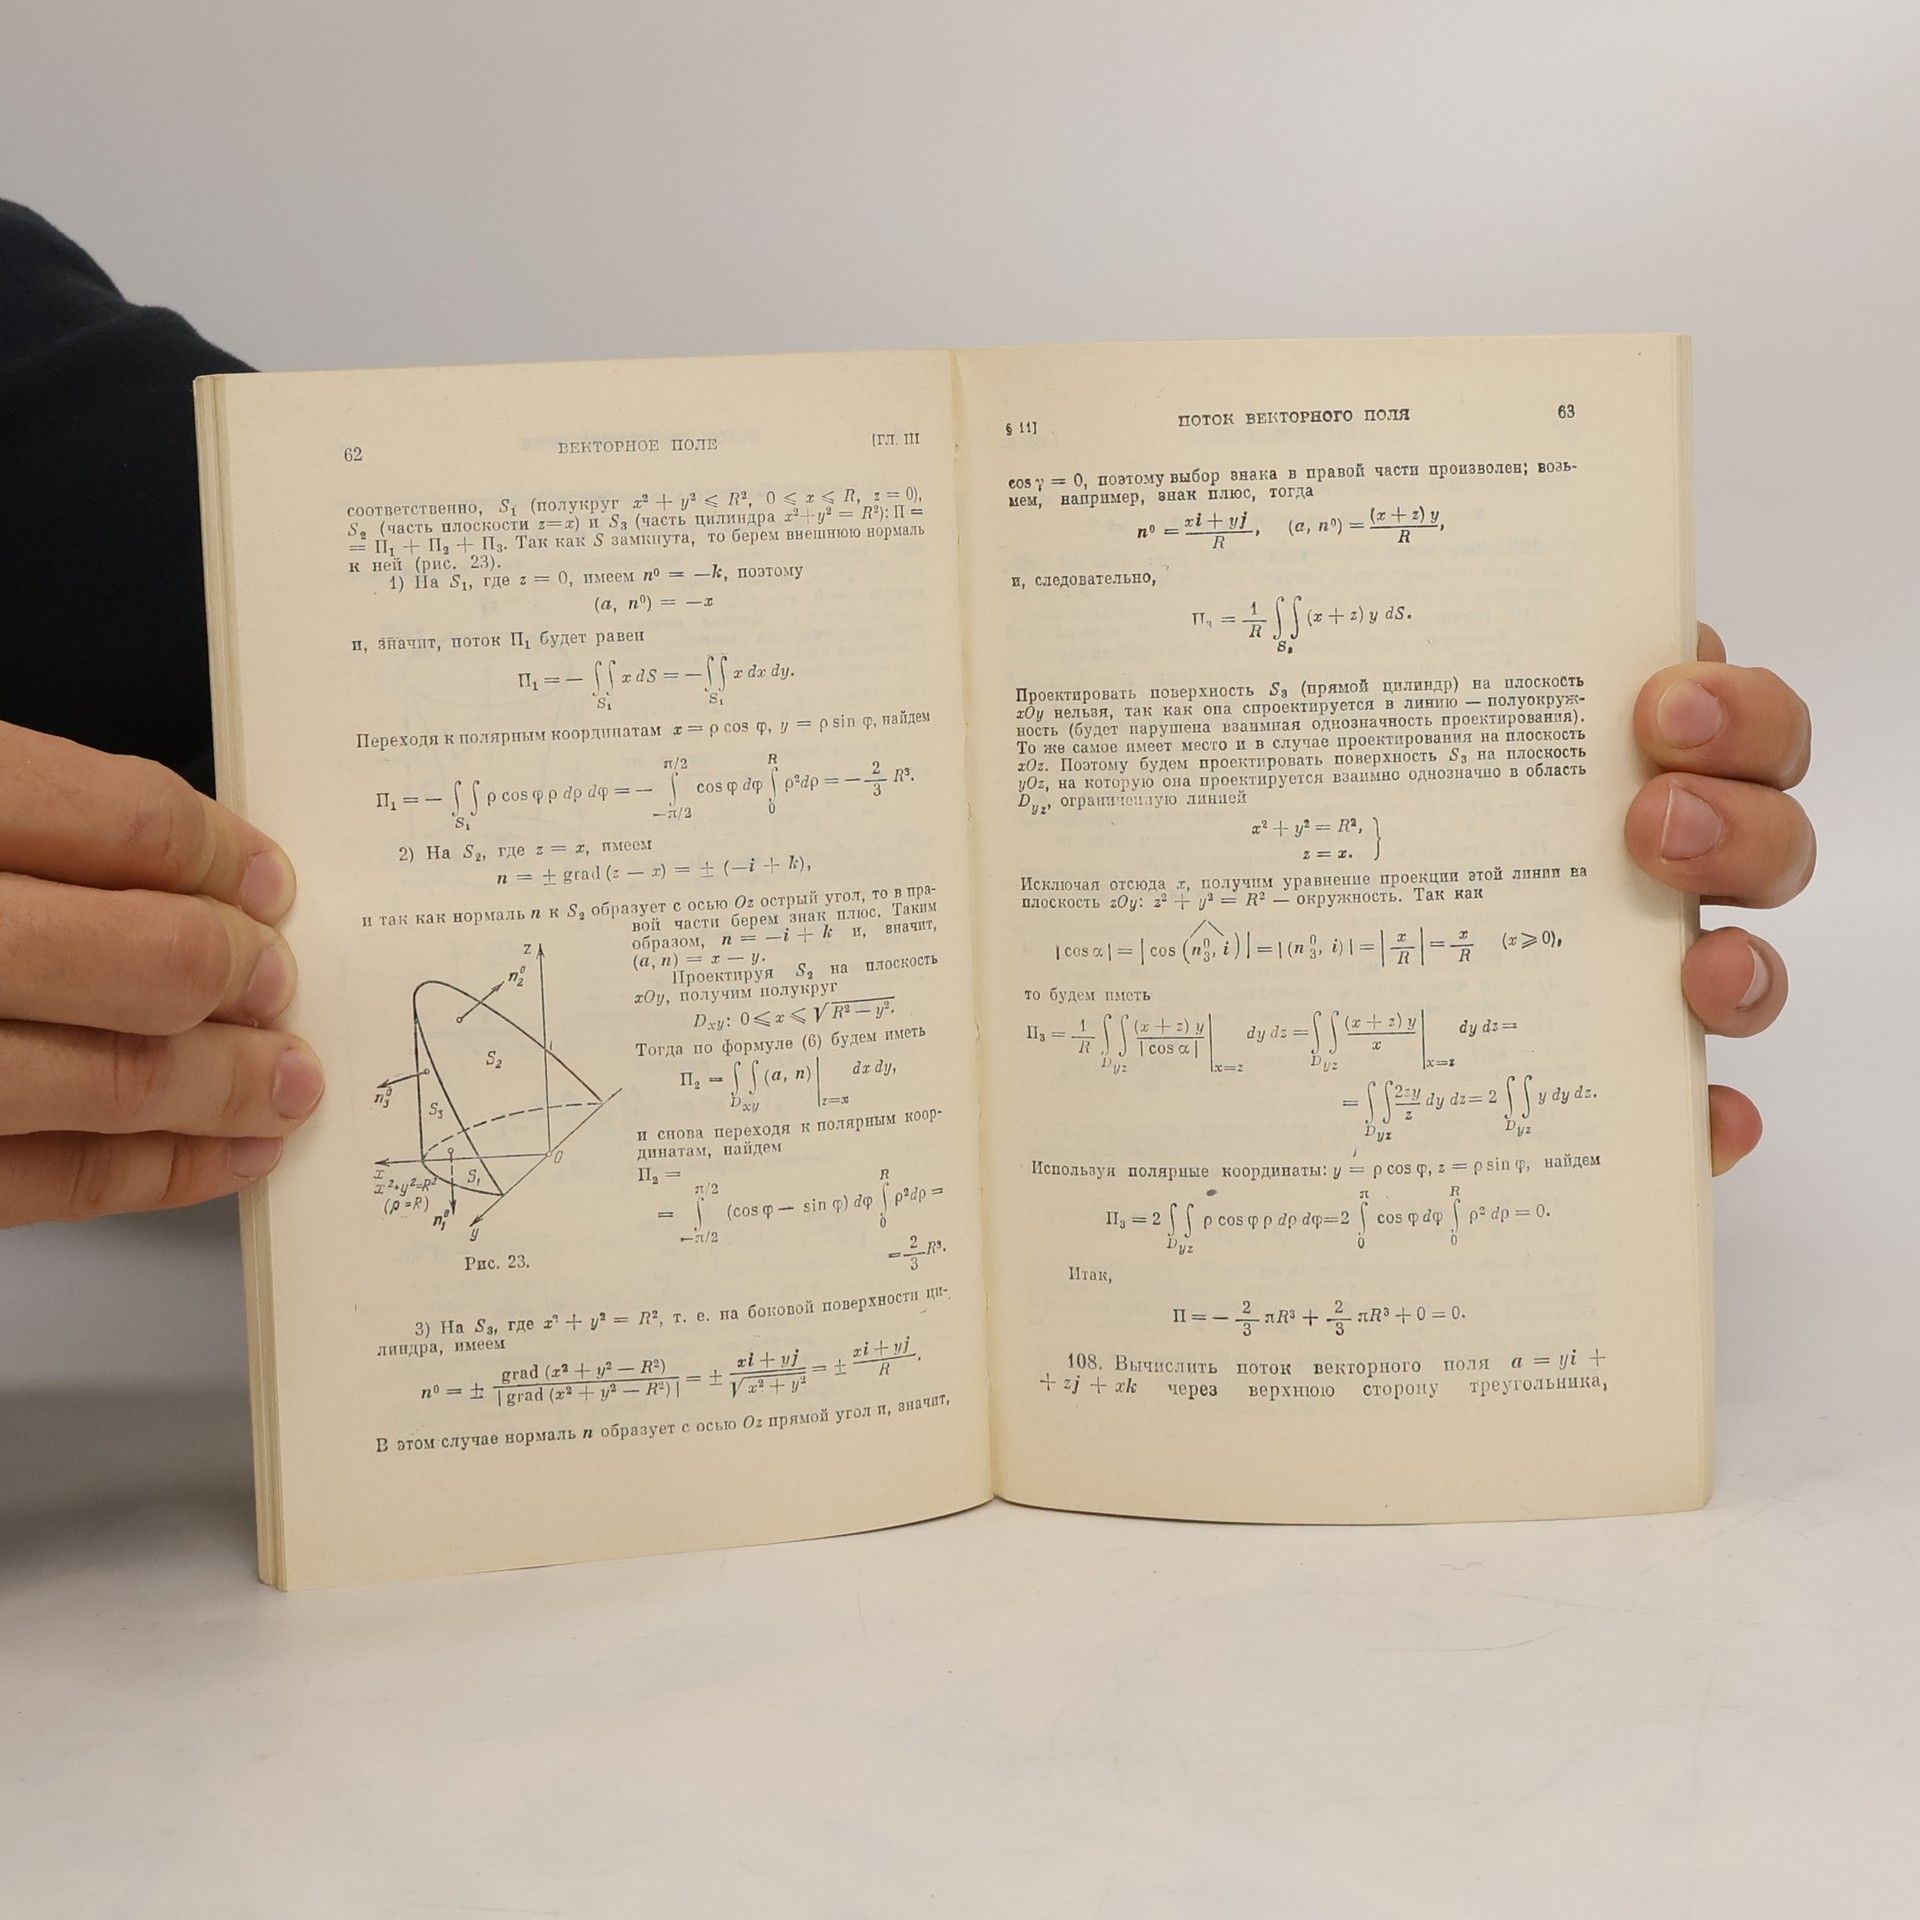 62 ВЕКТОРНОЕ ПОЛЕ [ГЛ. III
соответственно, S₁ (полукруг x² + y² ⩽ R², 0 ⩽ x ⩽ R, z = 0),
S₂ (часть плоскости z=x) и S₃ (часть цилиндра x²+y² = R²): П =
= П₁ + П₂ + П₃. Так как S замкнута, то берем внешнюю нормаль
к ней (рис. 23).
1) На S₁, где z = 0, имеем n⁰ = —k, поэтому
(a, n⁰) = —x
и, значит, поток П₁ будет равен
П₁ = — ∫∫_{S₁} x dS = — ∫∫_{S₁} x dx dy.
Переходя к полярным координатам x = ρ cos φ, y = ρ sin φ, найдем
П₁ = — ∫∫_{S₁} ρ cos φ ρ dρ dφ = — ∫_{—π/2}^{π/2} cos φ dφ ∫_0^R ρ²dρ = — 2/3 R³.
2) На S₂, где z = x, имеем
n = ± grad (z — x) = ± (—i + k),
и так как нормаль n к S₂ образует с осью Oz острый угол, то в пра-
вой части берем знак плюс. Таким
образом, n = —i + k и, значит,
(a, n) = x — y.
Проектируя S₂ на плоскость
xOy, получим полукруг
D_{xy}: 0 ⩽ x ⩽ √(R² — y²).
Тогда по формуле (6) будем иметь
П₂ = ∫∫_{D_{xy}} (a, n)|_{z=x} dx dy,
и снова переходя к полярным коор-
динатам, найдем
П₂ =
= ∫_{—π/2}^{π/2} (cos φ — sin φ) dφ ∫_0^R ρ²dρ =
= 2/3 R³.
z
n₂⁰
S₂
n₃⁰
S₃
x
O
x²+y²=R²
(ρ=R)
S₁
n₁⁰
y
Рис. 23.
3) На S₃, где x² + y² = R², т. е. на боковой поверхности ци-
линдра, имеем
n⁰ = ± grad (x² + y² — R²) / |grad (x² + y² — R²)| = ± (xi + yj) / √(x² + y²) = ± (xi + yj) / R.
В этом случае нормаль n образует с осью Oz прямой угол и, значит,
§ 11] ПОТОК ВЕКТОРНОГО ПОЛЯ 63
cos γ = 0, поэтому выбор знака в правой части произволен; возь-
мем, например, знак плюс, тогда
n⁰ = (xi + yj) / R, (a, n⁰) = (x + z) y / R,
и, следовательно,
П₃ = 1/R ∫∫_{S₃} (x + z) y dS.
Проектировать поверхность S₃ (прямой цилиндр) на плоскость
xOy нельзя, так как она спроектируется в линию — полуокруж-
ность (будет нарушена взаимная однозначность проектирования).
То же самое имеет место и в случае проектирования на плоскость
xOz. Поэтому будем проектировать поверхность S₃ на плоскость
yOz, на которую она проектируется взаимно однозначно в область
D_{yz}, ограниченную линией
x² + y² = R²,
z = x. }
Исключая отсюда x, получим уравнение проекции этой линии на
плоскость zOy: z² + y² = R² — окружность. Так как
|cos α| = |cos (n₃⁰, i)| = |(n₃⁰, i)| = |x/R| = x/R (x ⩾ 0),
то будем иметь
П₃ = 1/R ∫∫_{D_{yz}} (x + z) y / |cos α| |_{x=z} dy dz = ∫∫_{D_{yz}} (x + z) y / x |_{x=z} dy dz =
= ∫∫_{D_{yz}} 2zy/z dy dz = 2 ∫∫_{D_{yz}} y dy dz.
Используя полярные координаты: y = ρ cos φ, z = ρ sin φ, найдем
П₃ = 2 ∫∫_{D_{yz}} ρ cos φ ρ dρ dφ = 2 ∫_0^π cos φ dφ ∫_0^R ρ² dρ = 0.
Итак,
П = — 2/3 πR³ + 2/3 πR³ + 0 = 0.
108. Вычислить поток векторного поля a = yi +
+ zj + xk через верхнюю сторону треугольника,